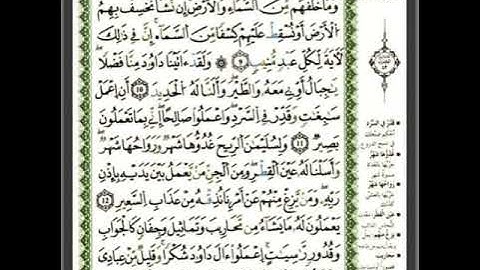 وَمَا خَلْفَهُم مِّنَ ٱلسَّمَآءِ وَٱلْأَرْضِ إِن نَّشَأْ نَخْسِفْ بِهِمُ
ٱلْأَرْضَ أَوْ نُسْقِطْ عَلَيْهِمْ كِسَفًا مِّنَ ٱلسَّمَآءِ إِنَّ فِى ذَٰلِكَ
لَءَايَةً لِّكُلِّ عَبْدٍ مُّنِيبٍ ٩ وَلَقَدْ ءَاتَيْنَا دَاوُۥدَ مِنَّا فَضْلًا
يَٰجِبَالُ أَوِّبِى مَعَهُۥ وَٱلطَّيْرَ وَأَلَنَّا لَهُ ٱلْحَدِيدَ ١٠ أَنِ ٱعْمَلْ
سَٰبِغَٰتٍ وَقَدِّرْ فِى ٱلسَّرْدِ وَٱعْمَلُوا۟ صَٰلِحًا إِنِّى بِمَا تَعْمَلُونَ
بَصِيرٌ ١١ وَلِسُلَيْمَٰنَ ٱلرِّيحَ غُدُوُّهَا شَهْرٌ وَرَوَاحُهَا شَهْرٌ
وَأَسَلْنَا لَهُۥ عَيْنَ ٱلْقِطْرِ وَمِنَ ٱلْجِنِّ مَن يَعْمَلُ بَيْنَ يَدَيْهِ بِإِذْنِ
رَبِّهِۦ وَمَن يَزِغْ مِنْهُمْ عَنْ أَمْرِنَا نُذِقْهُ مِنْ عَذَابِ ٱلسَّعِيرِ ١٢
يَعْمَلُونَ لَهُۥ مَا يَشَآءُ مِن مَّحَٰرِيبَ وَتَمَٰثِيلَ وَجِفَانٍ كَٱلْجَوَابِ
وَقُدُورٍ رَّاسِيَٰتٍ ٱعْمَلُوٓا۟ ءَالَ دَاوُۥدَ شُكْرًا وَقَلِيلٌ مِّنْ عِبَادِىَ
قَدِّرْ فِي السَّرْدِ
غُدُوُّهَا شَهْرٌ
رَوَاحُهَا شَهْرٌ